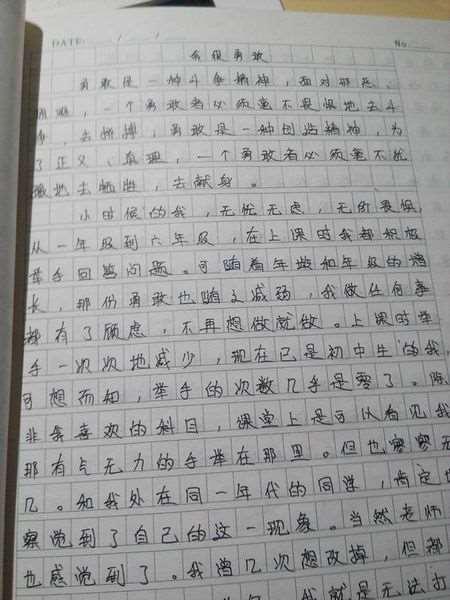 DATE: / / No.
我很勇敢
勇敢是一种斗争精神，面对邪恶、
困难，一个勇敢者必须毫不畏惧地去斗
争，去拼搏，勇敢是一种创造精神，为
了正义、真理，一个勇敢者必须毫不犹
地去牺牲，去献身。
小时候的我，无忧无虑，无所畏惧，
从一年级到六年级，在上课时我都积极
举手回答问题。可随着年龄和年级的增
长，那份勇敢也随之减弱，我做任何事
都有了顾虑，不再想做就做。上课时举
手一次次地减少，现在已是初中生的我，
可想而知，举手的次数几乎是零了。除
非我喜欢的科目，课堂上是可以看见我
那有气无力的手举在那里。但也寥寥无
几。和我处在同一年代的同学，肯定也
察觉到了自己的这一现象。当然老师
也感觉到了。我曾几次想改掉，但都
我就是无法打